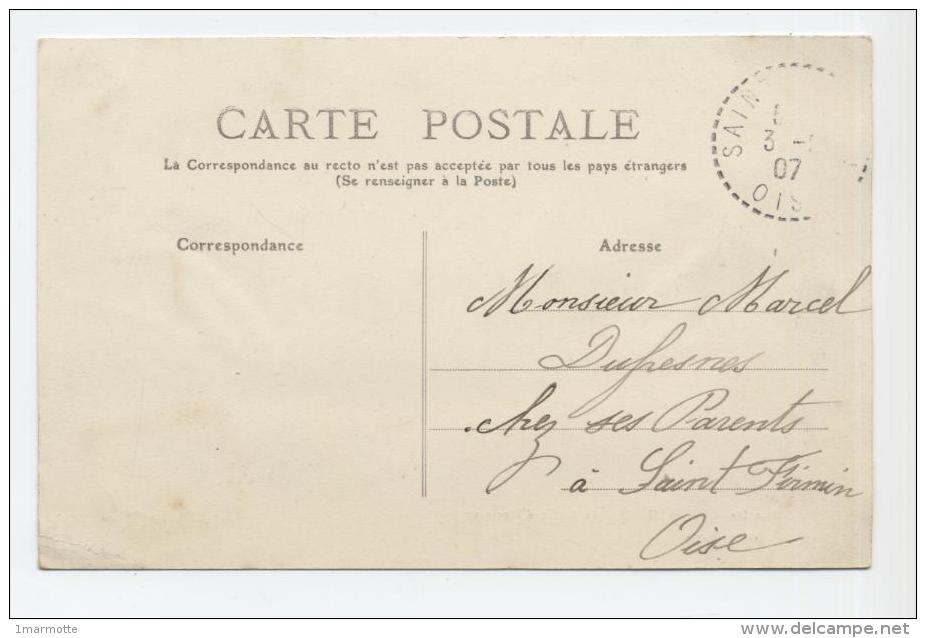 CARTE POSTALE
La Correspondance au recto n'est pas acceptée par tous les pays étrangers
(Se renseigner à la Poste)
SAIN
3 -
07
OIS
Correspondance
Adresse
Monsieur Marcel
Dufresnes
chez ses Parents
à Saint Firmin
Oise
1marmotte
www.delcampe.net